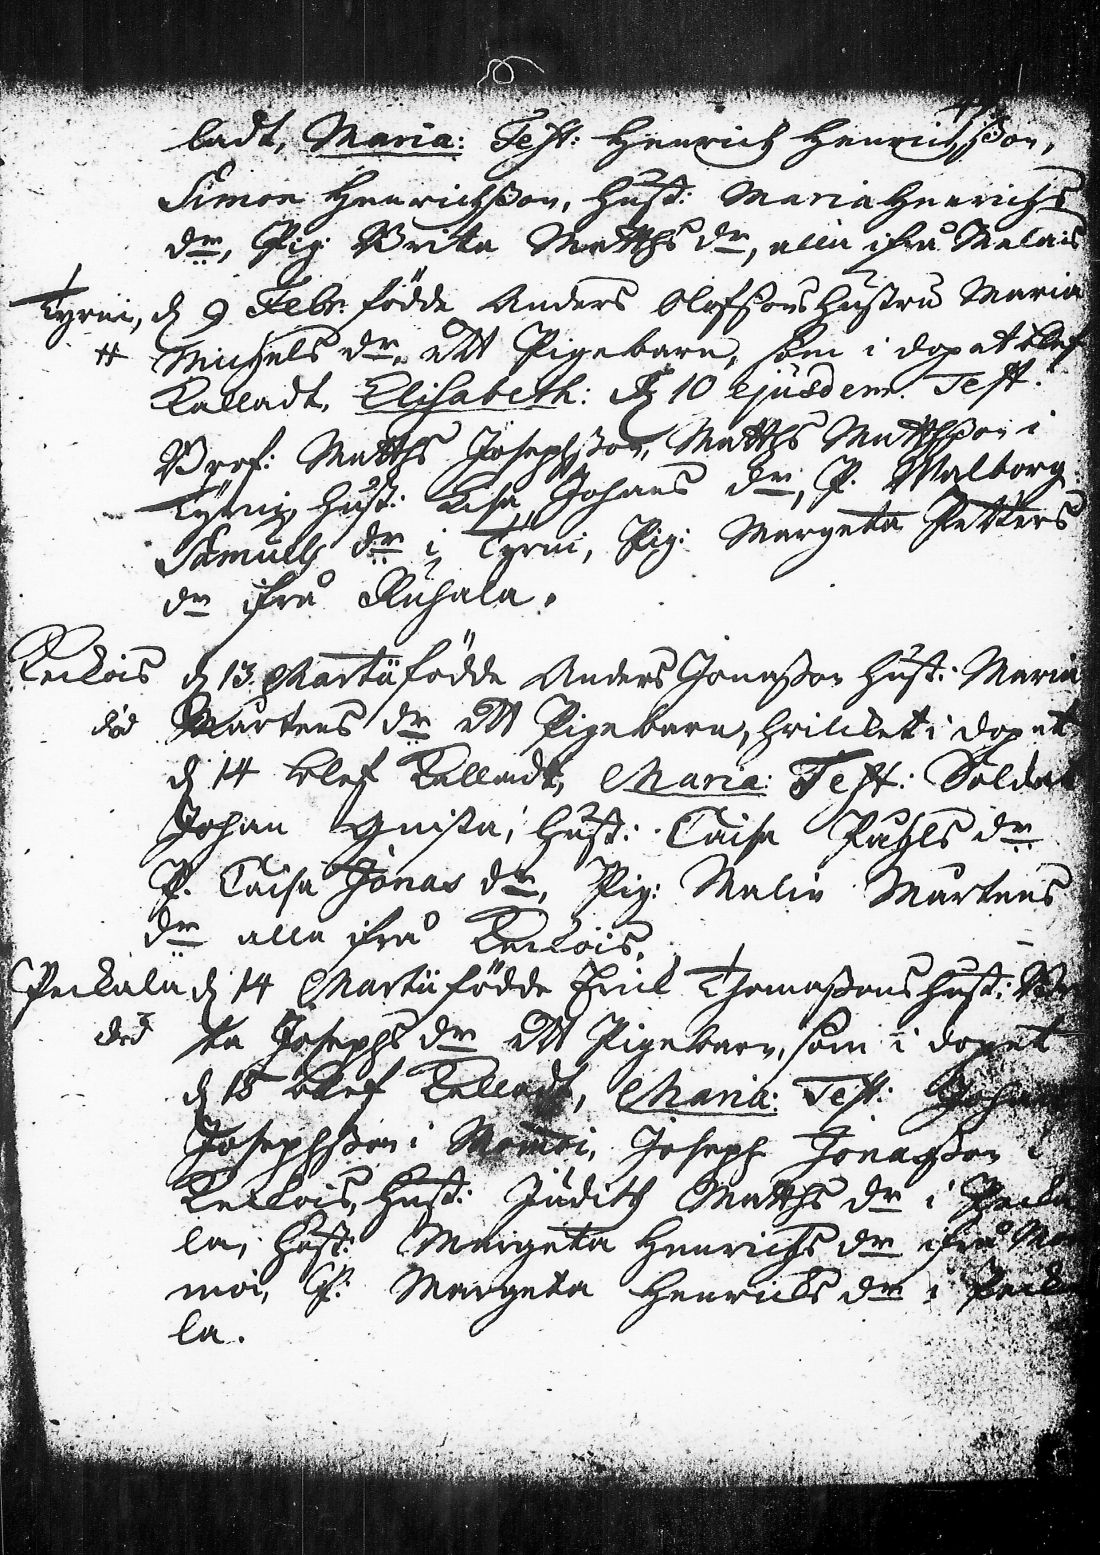 ladt, Maria: Test: Henrich Henrichsson,
Simon Henrichsson, Hust: Maria Henrichs
dr, Pig: Brita Matths dr, alla ifrå Malais
Tyrni, d 9 Febr: födde Anders Olofssons Hustru Maria
# Michels dr, ett Pigebarn, som i dopet blef
Kalladt, Elisabeth: d 10 ejusdem. Test:
Prof: Matths Josephsson, Matths Matthsson i
Tyrni, Hust: Lisa Johans dr, P. Walborg
Samuels dr i Tyrni, Pig: Margeta Petters
dr ifrå Ruhala.
Keckois d 13 Martii födde Anders Jonasson Hust: Maria
död Mårtens dr ett Pigebarn, hvilket i dopet
d 14 blef Kalladt, Maria: Test: Soldat
Johan Gnista, Hust: Caisa Påhls dr
P. Caisa Jonas dr, Pig: Malin Mårtens
dr alla ifrå Keckois.
Peckala d 14 Martii födde Erick Thomassons Hust: Bri
död ta Josephs dr ett Pigebarn, som i dopet
d 15 blef Kalladt, Maria: Test: Johan
Josephsson i Momoi, Joseph Jonasson i
Keckois, Hust: Judith Matths dr i Pecka
la, Hust: Margeta Henrichs dr ifrå Mo
moi, P: Margeta Henricks dr i Pecka
la.